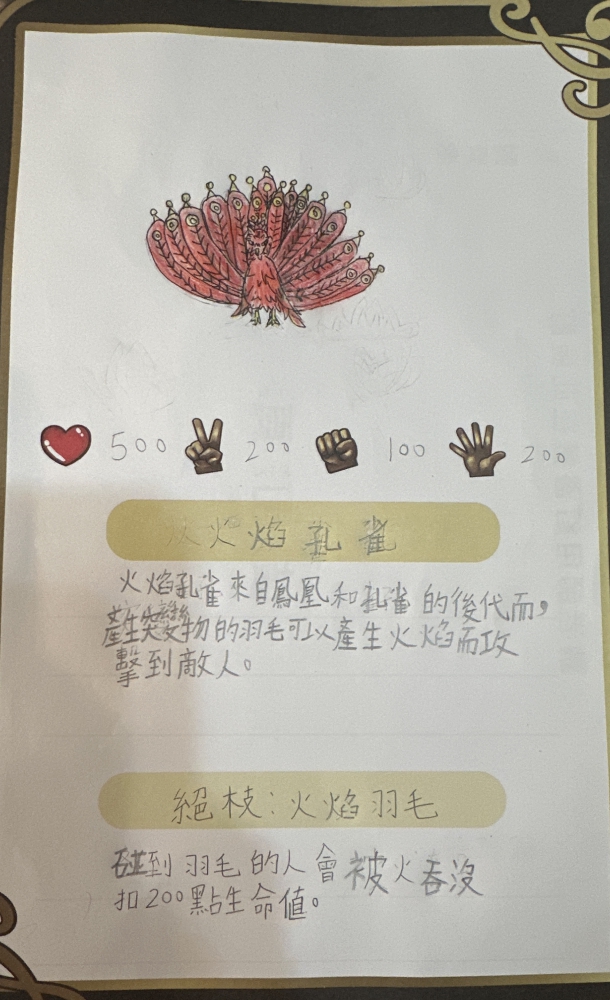 500 200 100 200
火焰孔雀
火焰孔雀來自鳳凰和孔雀的後代而,
產生突變物的羽毛可以產生火焰而攻
擊到敵人。
絕枝:火焰羽毛
碰到羽毛的人會被火吞沒
扣200點生命值。